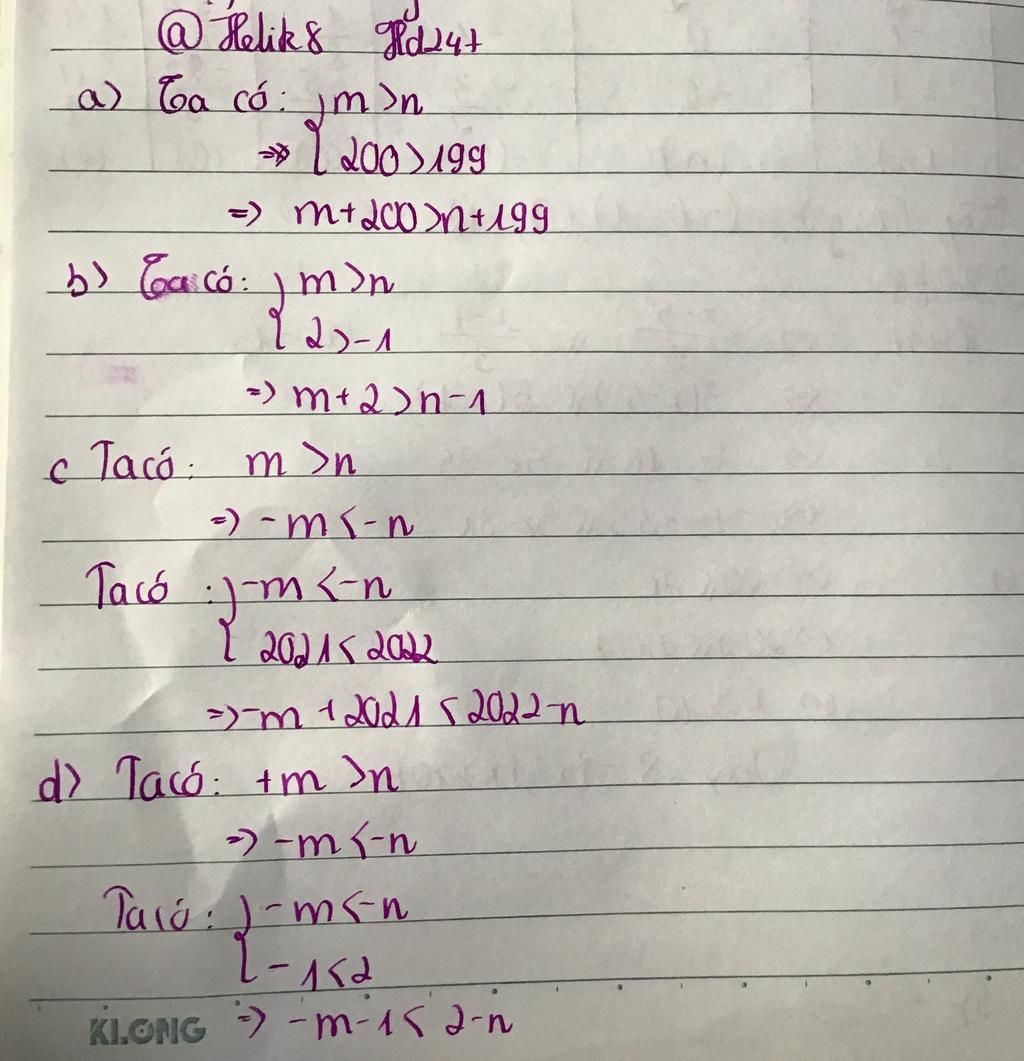 @ Helik8 Hd247
a) Ta có: { m > n
=> { 200 > 199
=> m+200 > n+199
b) Ta có: { m > n
{ 2 > -1
=> m+2 > n-1
c Ta có: m > n
=> -m < -n
Ta có : { -m < -n
{ 2021 < 2022
=> -m + 2021 < 2022-n
d) Ta có: +m > n
=> -m < -n
Ta có: { -m < -n
{ -1 < 2
KLONG => -m-1 < 2-n